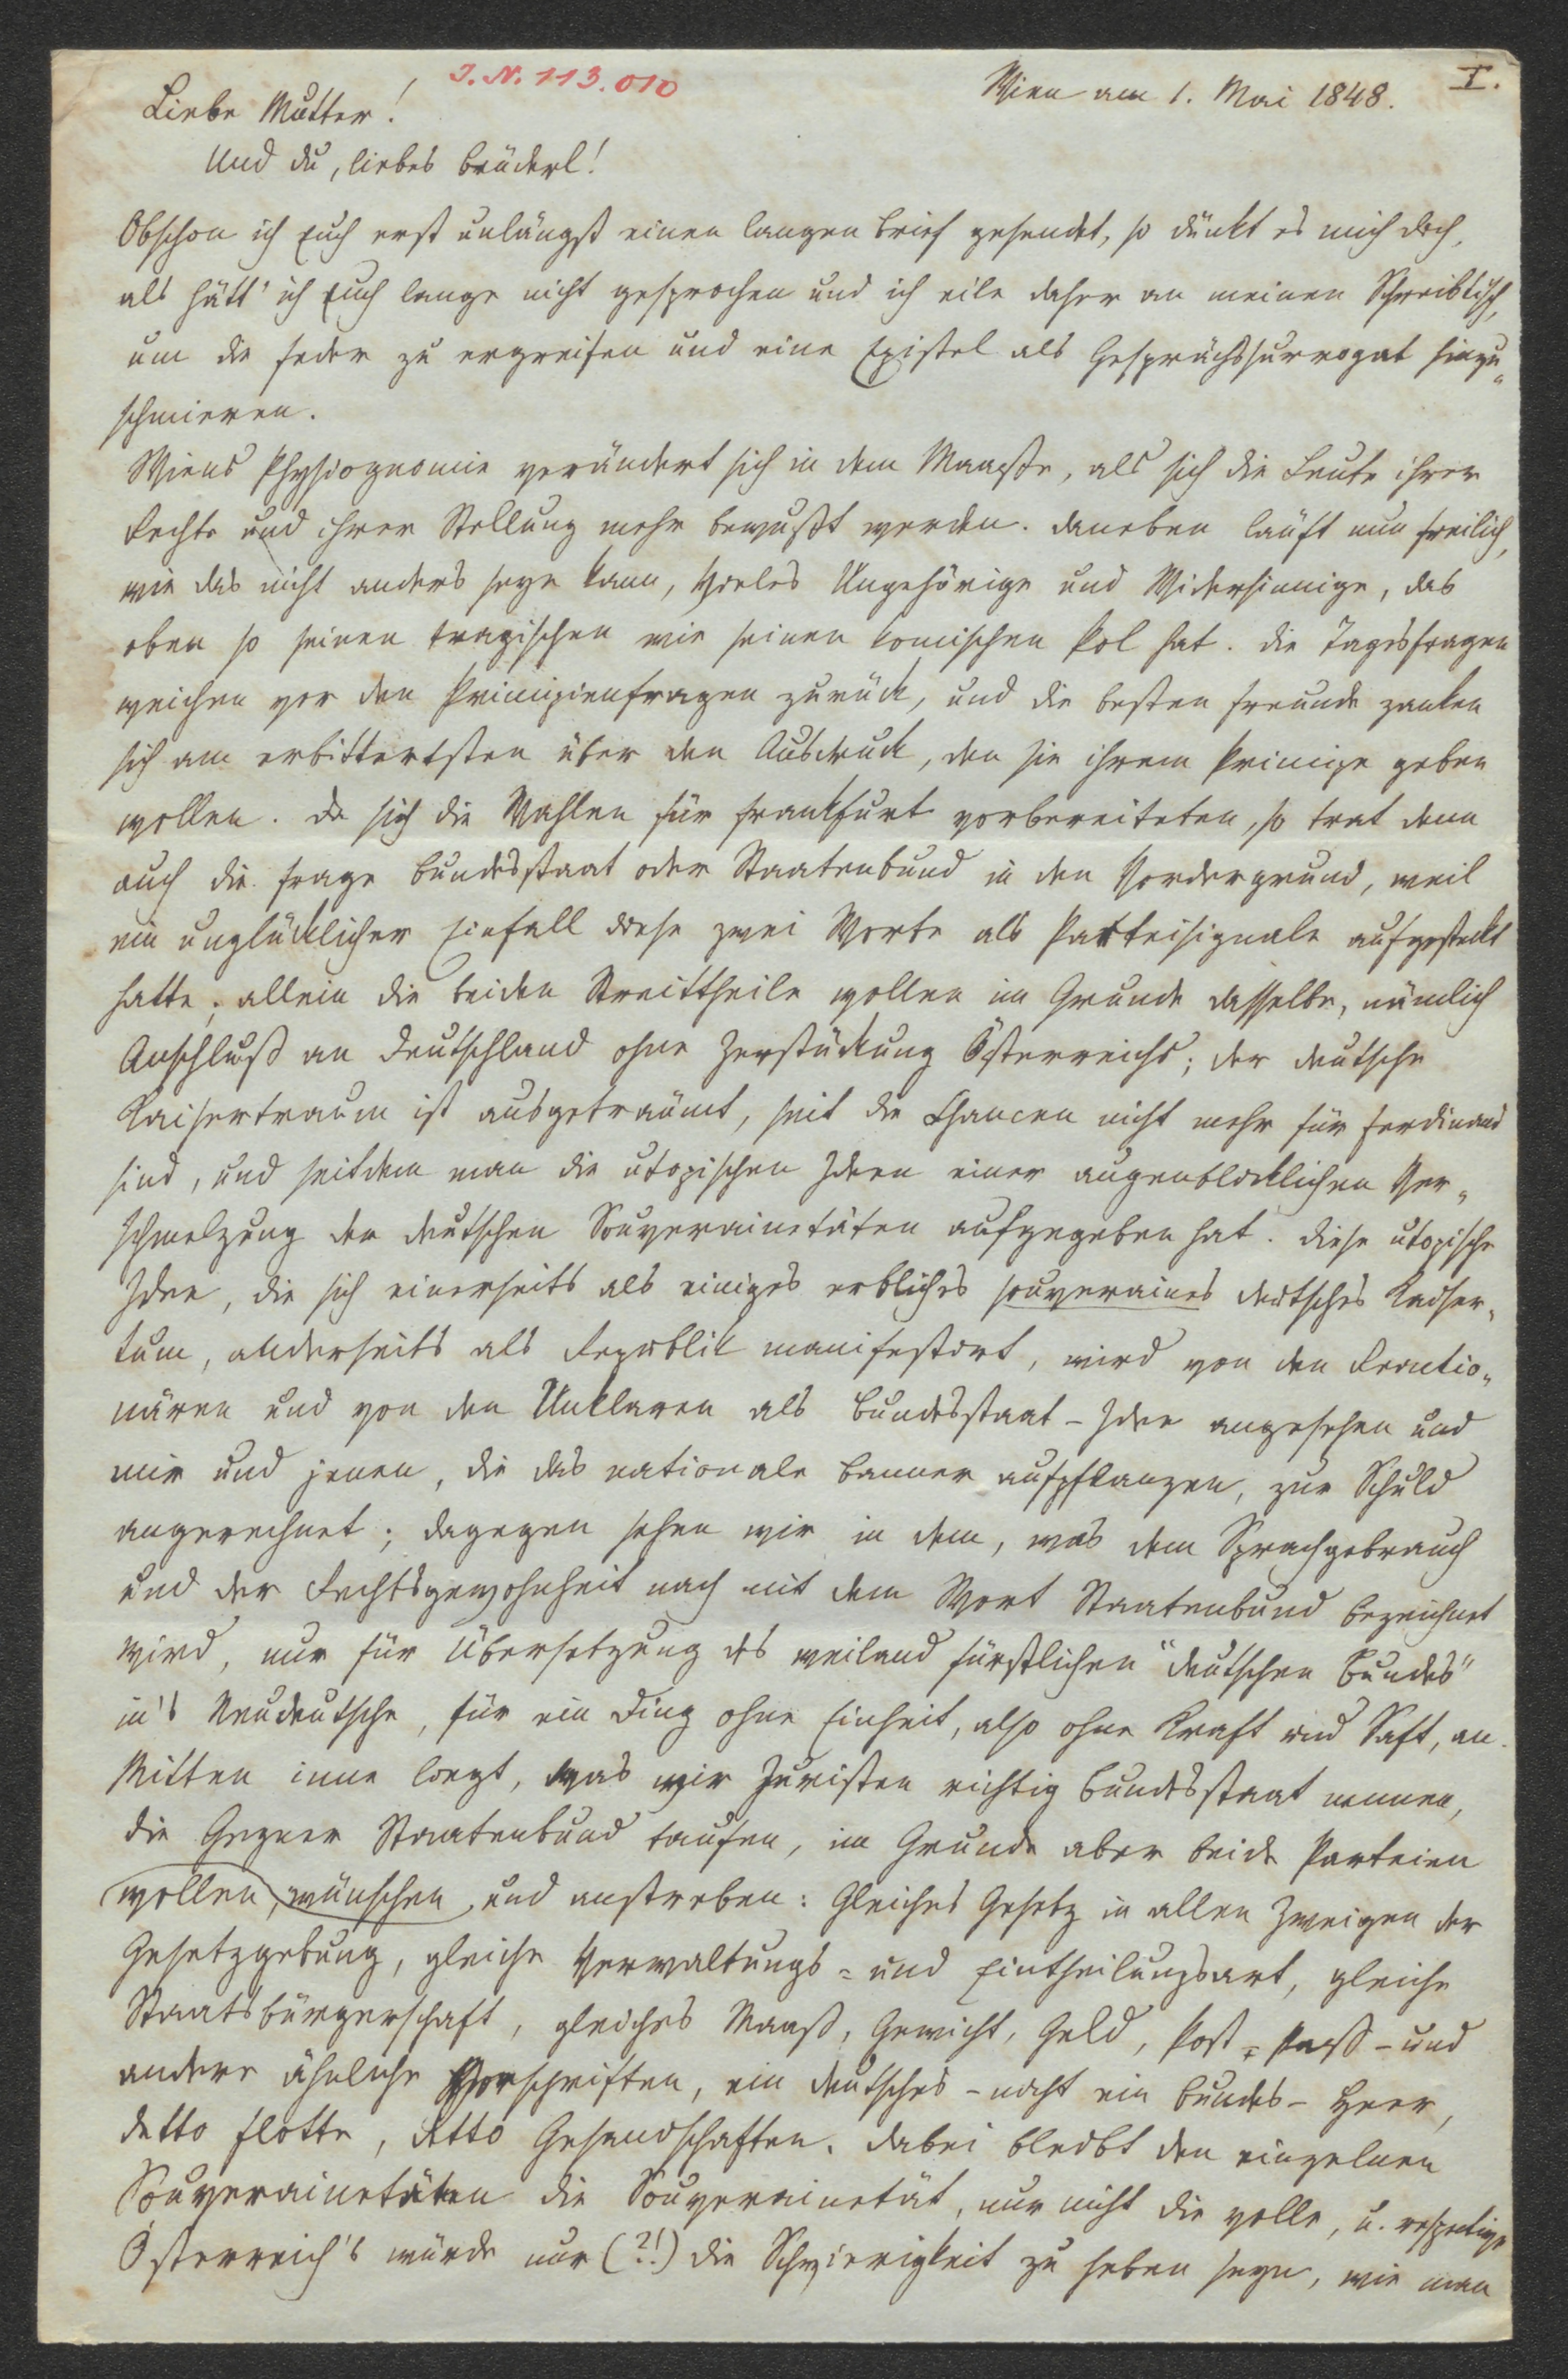 J. N. 113.010
Wien am 1. Mai 1848.
I.
Liebe Mutter!
Und du, liebes Brüderl!
Obschon ich Euch erst unlängst einen langen Brief gesendet, so dünkt es mich doch,
als hätt' ich Euch lange nicht gesprochen und ich eile daher an meinen Schreibtisch,
um die Feder zu ergreifen und eine Epistel als Gesprächssurrogat hinzu„
schmieren.
Wiens Physiognomie verändert sich in dem Maaße, als sich die Leute ihrer
Rechte und ihrer Stellung mehr bewußt werden. Daneben läuft nun freilich,
wie das nicht anders seyn kann, Vieles Ungehörige und Widersinnige, das
eben so seinen tragischen wie seinen komischen Pol hat. Die Tagesfragen
weichen vor den Prinzipienfragen zurück, und die besten Freunde zanken
sich am erbittertsten über den Ausdruck, den sie ihrem Prinzipe geben
wollen. Da sich die Wahlen für Frankfurt vorbereiteten, so trat denn
auch die Frage Bundesstaat oder Staatenbund in den Vordergrund, weil
ein unglücklicher Einfall diese zwei Worte als Parteisignale aufgesteckt
hatte; allein die beiden Streittheile wollen im Grunde dasselbe, nämlich
Anschluß an Deutschland ohne Zerstückung Österreichs; der deutsche
Kaisertraum ist ausgeträumt, seit die Chancen nicht mehr für Ferdinand
sind, und seitdem man die utopischen Ideen einer augenblicklichen Ver„
schmelzung der deutschen Souverainetäten aufgegeben hat. Diese utopische
Idee, die sich einerseits als einiges erbliches souveraines deutsches Kaiser„
tum, anderseits als Republik manifestirt, wird von den Reactio„
nären und von den Unklaren als Bundesstaat-Idee angesehen und
mir und jenen, die das nationale Banner aufpflanzen, zur Schuld
angerechnet; dagegen sehen wir in dem, was dem Sprachgebrauch
und der Rechtsgewohnheit nach mit dem Wort Staatenbund bezeichnet
wird, nur für Übersetzung des weiland fürstlichen "deutschen Bundes"
in's Neudeutsche, für ein Ding ohne Einheit, also ohne Kraft und Saft, an.
Mitten inne liegt, was wir Juristen richtig Bundesstaat nennen,
die Gegner Staatenbund taufen, im Grunde aber beide Parteien
wollen, wünschen und anstreben: Gleiches Gesetz in allen Zweigen der
Gesetzgebung, gleiche Verwaltungs= und Eintheilungsart, gleiche
Staatsbürgerschaft, gleiches Maaß, Gewicht, Geld, Post= Paß- und
andere ähnliche Vorschriften, ein deutsches - nicht ein Bundes- Heer,
detto Flotte, detto Gesandschaften. Dabei bleibt den einzelnen
Souverainetäten die Souverainetät, nur nicht die volle, u. respective
Österreich's würde nur (?!) die Schwierigkeit zu heben seyn, wie man